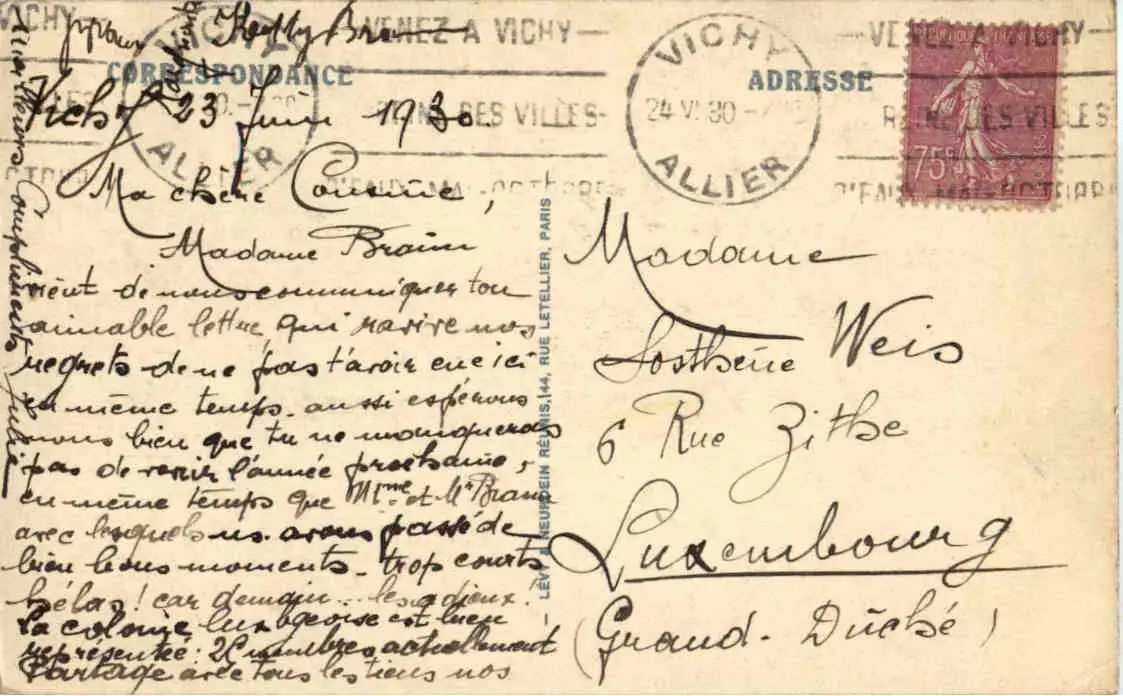 VICHY
ALLIER
VENEZ A VICHY
REINE DES VILLES
D'EAUX MAI-OCTOBRE
VICHY
24 VI 30
ALLIER
VENEZ A VICHY
REINE DES VILLES
D'EAUX MAI-OCTOBRE
REPUBLIQUE FRANCAISE
75c
CORRESPONDANCE
ADRESSE
Vichy 23 Juin 1930.
Ma chère Cousine,
Madame Braun
vient de nous communiquer ton
aimable lettre, qui ravive nos
regrets de ne pas t'avoir eue ici
en même temps. aussi espérons
nous bien que tu ne manqueras
pas de venir l'année prochaine,
en même temps que Mme et Mr Braun
avec lesquels ns. avons passé de
bien bons moments. trop courts
hélas! car demain... les adieux!
La colonie luxbgeoise est bien
représentée: membres actuellement
Partage avec tous les tiens nos
Compliments
Julie
LEVY & NEURDEIN RÉUNIS, 44, RUE LETELLIER, PARIS
Madame
Sosthène Weis
6 Rue Zithe
Luxembourg
(Grand-Duché)